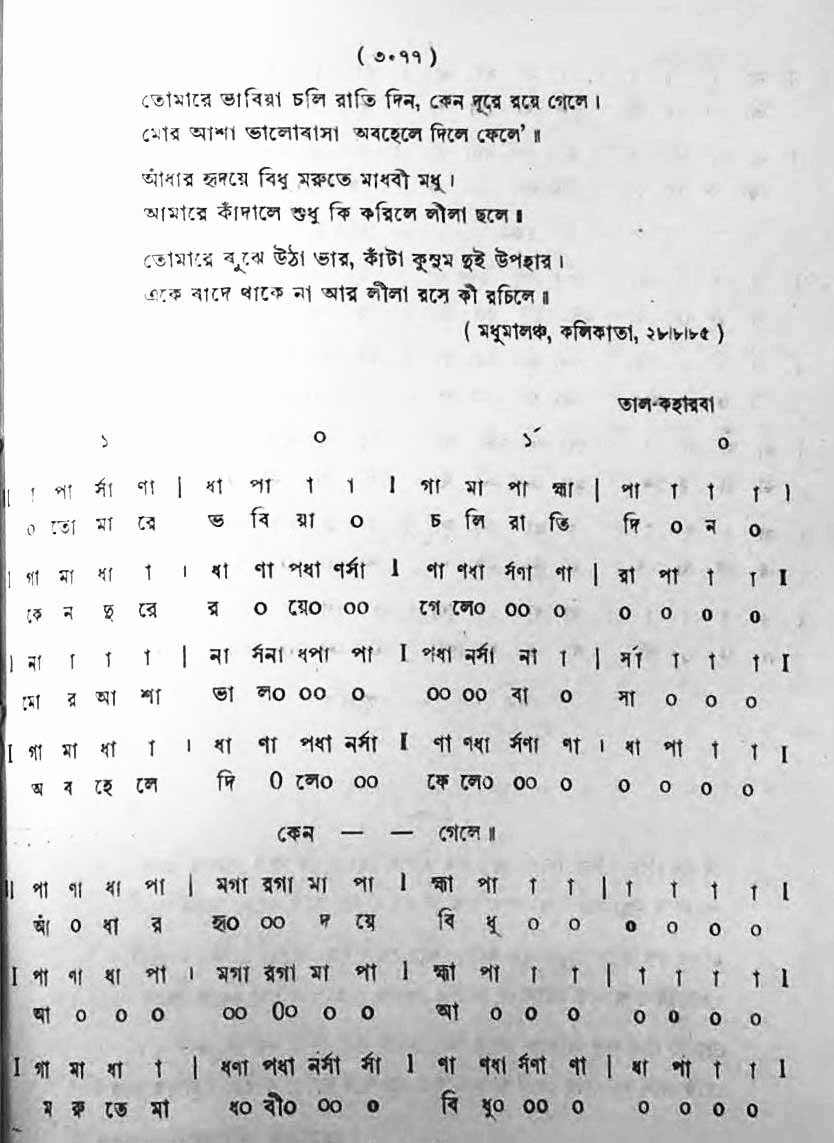 ( ৩০৭৭ )
তোমারে ভাবিয়া চলি রাতি দিন, কেন দূরে রয়ে গেলে ।
মোর আশা ভালোবাসা অবহেলে দিলে ফেলে' ॥
আঁধার হৃদয়ে বিধু মরুতে মাধবী মধু ।
আমারে কাঁদালে শুধু কি করিলে লীলা ছলে ॥
তোমারে বুঝে উঠা ভার, কাঁটা কুসুম দুই উপহার ।
একে বাদে থাকে না আর লীলা রসে কী রচিলে ॥
( মধুমালঞ্চ, কলিকাতা, ২৮।৮।৮৫ )
তাল-কহারবা
১ ০ ১´ ০
॥ া পা র্সা ণা | ধা পা া া I গা মা পা হ্মা | পা া া া I
০ তো মা রে ভ বি য়া ০ চ লি রা তি দি ০ ন ০
I গা মা ধা া । ধা ণা পধা ণর্সা I ণা ণধা র্সণা ণা | রা পা া া I
কে ন দু রে র ০ য়ে০ ০০ গে লে০ ০০ ০ ০ ০ ০ ০
I না া া া | না র্সনা ধপা পা I পধা নর্সা না া | র্সা া া া I
মো র আ শা ভা ল০ ০০ ০ ০০ ০০ বা ০ সা ০ ০ ০
I গা মা ধা া । ধা ণা পধা নর্সা I ণা ণধা র্সণা ণা । ধা পা া া I
অ ব হে লে দি 0 লে০ ০০ ফে লে০ ০০ ০ ০ ০ ০ ০
কেন — — গেলে ॥
॥ পা ণা ধা পা | মগা রগা মা পা I হ্মা পা া া | া া া া I
আঁ ০ ধা র হৃ০ ০০ দ য়ে বি ধু ০ ০ ০ ০ ০ ০
I পা ণা ধা পা । মগা রগা মা পা I হ্মা পা া া | া া া া I
আ ০ ০ ০ ০০ 0০ ০ ০ আ ০ ০ ০ ০ ০ ০ ০
I গা মা ধা া | ধণা পধা নর্সা র্সা I ণা ণধা র্সণা ণা | ধা পা া া I
ম রু তে মা ধ০ বী০ ০০ ০ বি ধু০ ০০ ০ ০ ০ ০ ০